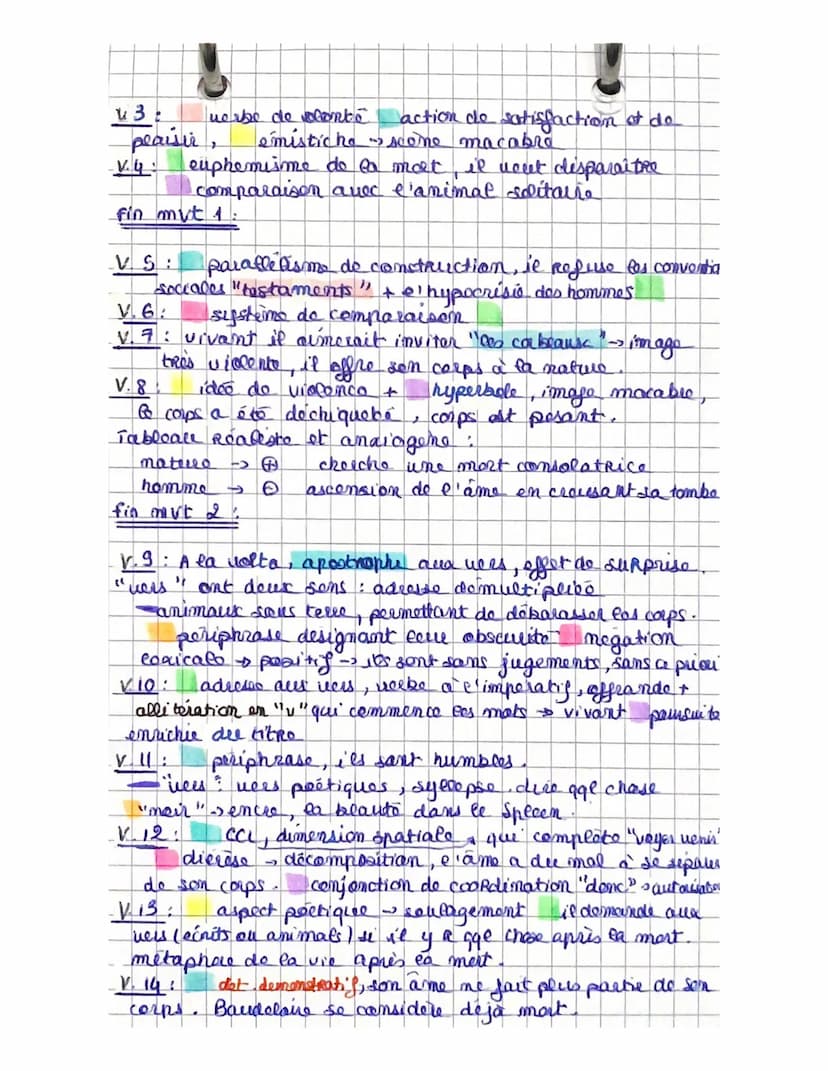 V3 : verbe de volonté action de satisfaction et de
plaisir, émistiche -> scène macabre
V.4 : euphemisme de la mort, il veut disparaitre
comparaison avec l'animal solitaire
fin mvt 1 :
V. 5 : parallélisme de construction, il refuse les conventio
sociales "testaments" + l'hypocrisie des hommes
V. 6 : système de comparaison
V. 7 : vivant il aimerait inviter "les corbeaux" -> image
très violente, il offre son corps à la nature.
V. 8 : idée de violence + hyperbole, image macabre,
le corps a été déchiqueté, corps est pesant.
Tableau Réaliste et anxiogène :
nature -> ⊕ cherche une mort consolatrice
homme -> ⊖ ascension de l'âme en creusant sa tombe
fin mvt 2 :
V.9 : A la volta, apostrophe aux vers, effet de surprise.
"vers" ont deux sens : adresse démultipliée
- animaux sous terre, permettant de débarasser les corps.
périphrase designant leur obscurité négation
lexicale -> positif -> ils sont sans jugements, sans a priori
V.10 : adresse aux vers, verbe à l'imperatif, offrande +
allitération en "v" qui commence les mots -> vivant poursuite
enrichie du titre
V. 11 : périphrase, ils sont humbles.
- "vers" : vers poétiques, syllepse. dire qqe chose
"noir" -> encre, la beauté dans le Spleen.
V. 12 : CCL, dimension spatiale, qui complète "voyez venir"
diérèse -> décomposition, l'âme a du mal à se séparer
de son corps. conjonction de coordination "donc"
V. 13 : aspect poétique -> soulagement il demande aux
vers (écrits ou animals) si il y a qqe chose après la mort.
métaphore de la vie après la mort.
V. 14 : det. demonstratif, son âme ne fait plus partie de son
corps. Baudelaire se considère déjà mort.